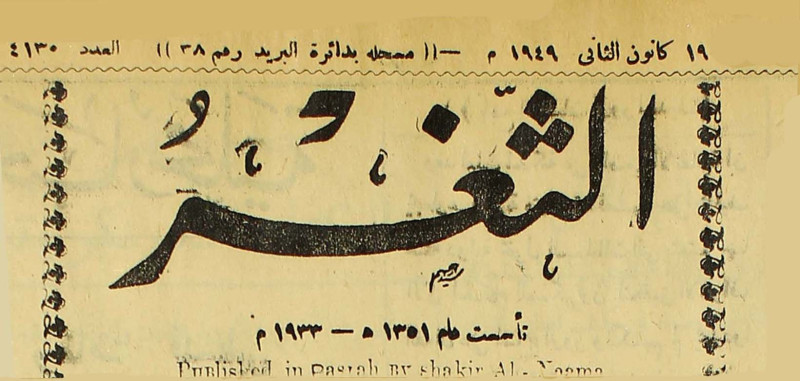 ١٩ كانون الثاني ١٩٤٩ م —(( مسجله بدائرة البريد رقم ٣٨ )) العدد ٤١٣٠
الثَّغْرُ
تأسست عام ١٣٥١ ه — ١٩٣٣ م
Published in Basrah BY shakir Al - Naama